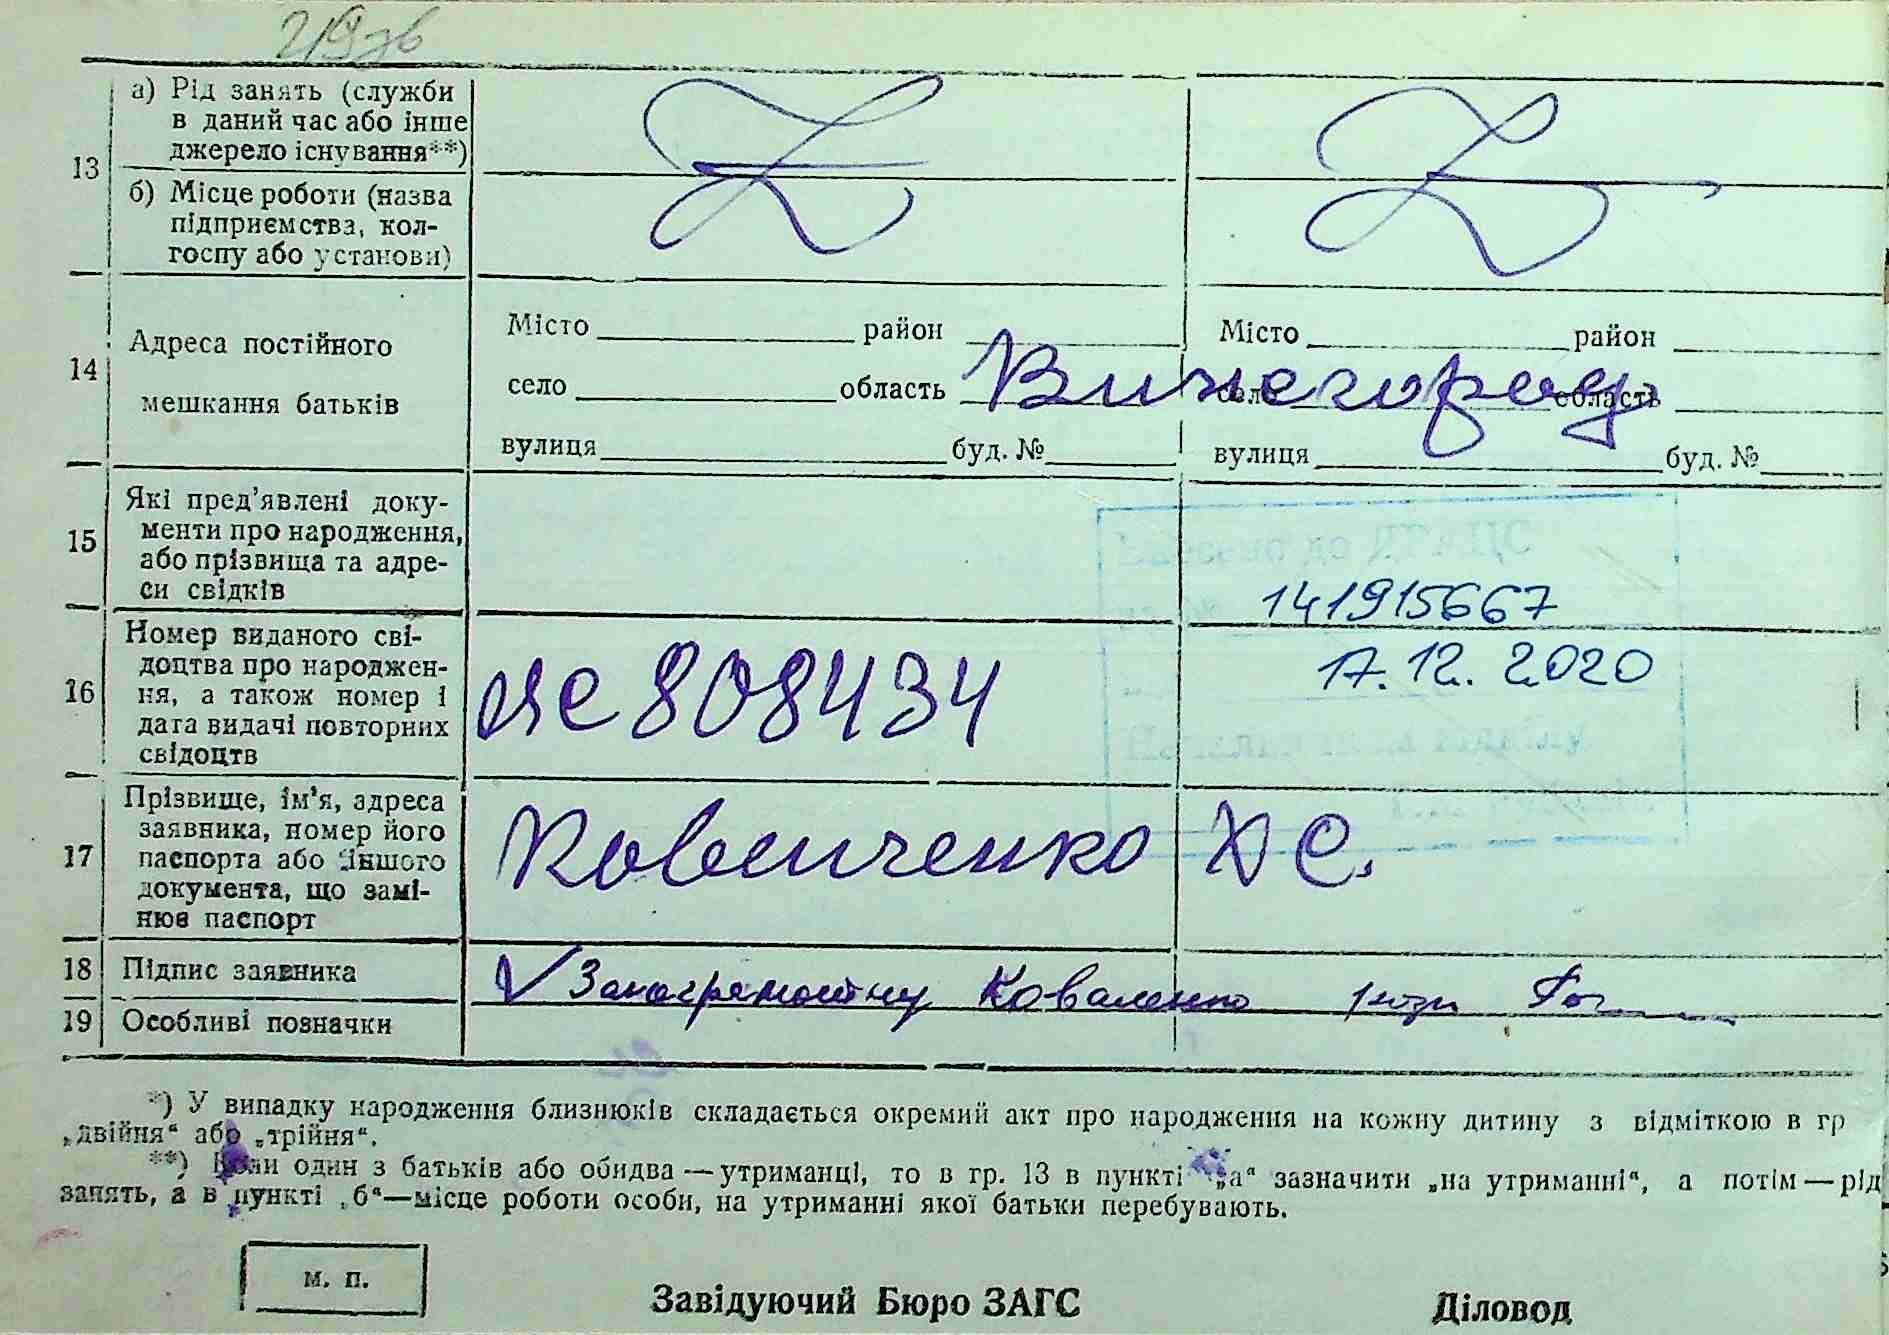 13
а) Рід занять (служби
в даний час або інше
джерело існування**)
б) Місце роботи (назва
підприємства, кол-
госпу або установи)
14
Адреса постійного
мешкання батьків
Місто район
село область
вулиця буд. №
Місто район
село область
вулиця буд. №
15
Які пред’явлені доку-
менти про народження,
або прізвища та адре-
си свідків
141915667
16
Номер виданого сві-
доцтва про народжен-
ня, а також номер і
дата видачі повторних
свідоцтв
808434
17.12.2020
17
Прізвище, ім’я, адреса
заявника, номер його
паспорта або іншого
документа, що замі-
нює паспорт
18 Підпис заявника
Коваленко
19 Особливі позначки
*) У випадку народження близнюків складається окремий акт про народження на кожну дитину з відміткою в гр
„двійня“ або „трійня“.
**) Коли один з батьків або обидва — утриманці, то в гр. 13 в пункті „а“ зазначити „на утриманні“, а потім — рід
занять, а в пункті „б“ — місце роботи особи, на утриманні якої батьки перебувають.
м. п.
Завідуючий Бюро ЗАГС
Діловод